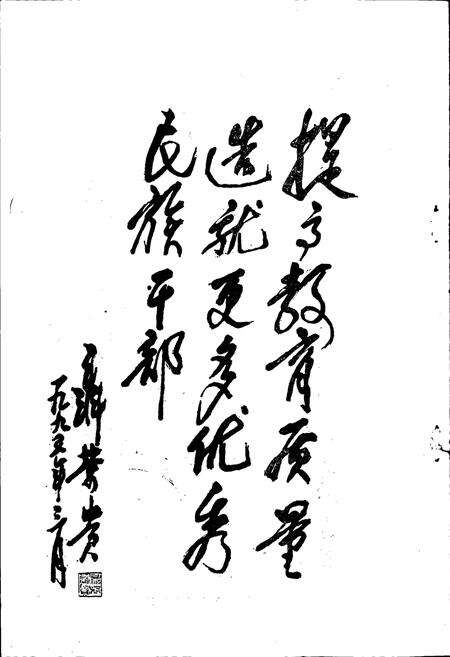 提高教育质量
造就更多优秀
民族干部
荣贵
一九九五年三月